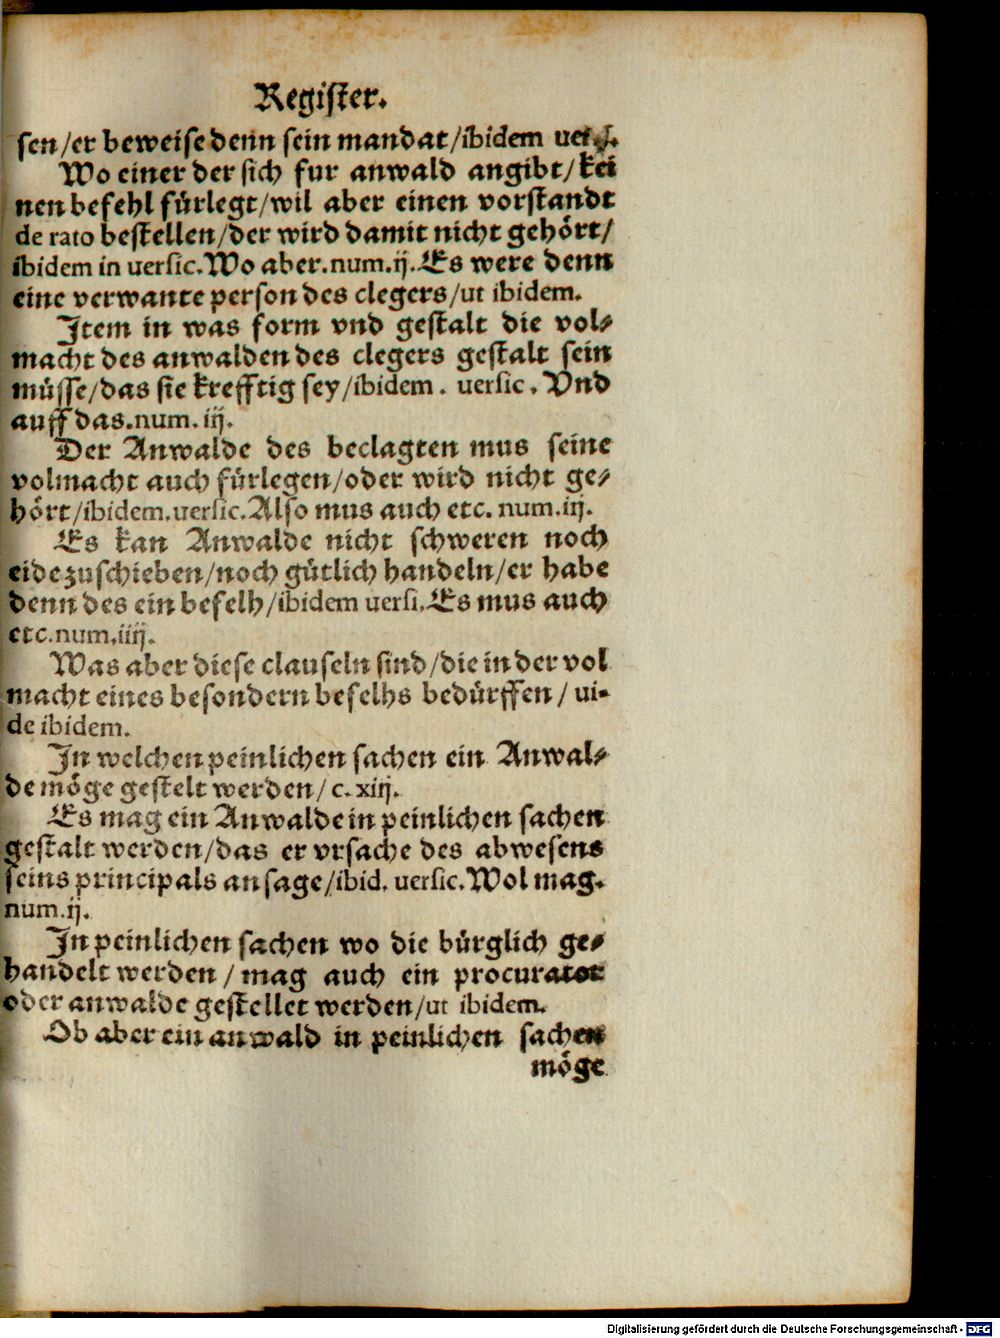 Register.
sen/er beweise denn sein mandat/ibidem
Wo einer der sich fur anwald angibt/kei
nen befehl fürlegt/wil aber einen vorstandt
de rato bestellen/der wird damit nicht gehört/
ibidem in uersic.Wo aber.num.ij.Es were denn
eine verwante person des clegers/ut ibidem.
Item in was form vnd gestalt die vol⸗
macht des anwalden des clegers gestalt sein
müsse/das sie krefftig sey/ibidem. uersic. Vnd
auff das.num.iij.
Der Anwalde des beclagten mus seine
volmacht auch fürlegen/oder wird nicht ge⸗
hört/ibidem.uersic.Also mus auch etc. num.iij.
Es kan Anwalde nicht schweren noch
eide zuschieben/noch gütlich handeln/er habe
denn des ein befelh/ibidem uersi.Es mus auch
etc.num.iiij.
Was aber diese clauseln sind/die in der vol
macht eines besondern befelhs bedürffen/ ui-
de ibidem.
In welchen peinlichen sachen ein Anwal⸗
de möge gestelt werden/ c. xiij.
Es mag ein Anwalde in peinlichen sachen
gestalt werden/das er vrsache des abwesens
seins principals ansage/ibid. uersic.Wol mag.
num.ij.
In peinlichen sachen wo die bürglich ge⸗
handelt werden / mag auch ein procurator
oder anwalde gestellet werden/ut ibidem.
Ob aber ein anwald in peinlichen sachen
möge
Digitalisierung gefördert durch die Deutsche Forschungsgemeinschaft - DFG